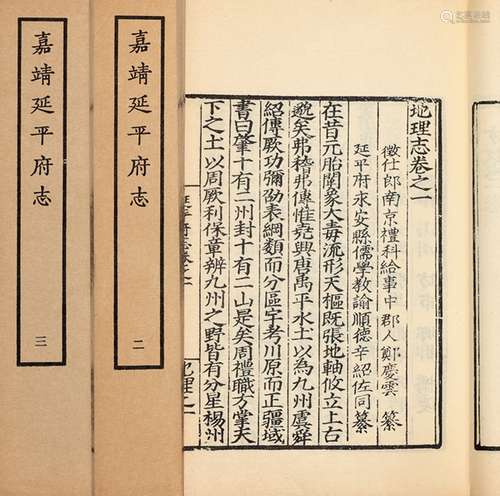 嘉靖延平府志
三
嘉靖延平府志
二
地理志卷之一
徵仕郎南京禮科給事中郡人鄭慶雲 纂
延平府永安縣儒學教諭順德辛紹佐同纂
在昔元胎闢象大毒流形天樞既張地軸攸立上古
邈矣弗稽弗傳惟堯興唐禹平水土以為九州虞舜
紹傳厥功彌劭表綱類而分區宇考川原而正疆域
書曰肇十有二州封十有二山是矣周禮職方掌天
下之土以周厥利保章辨九州之野皆有分星楊州